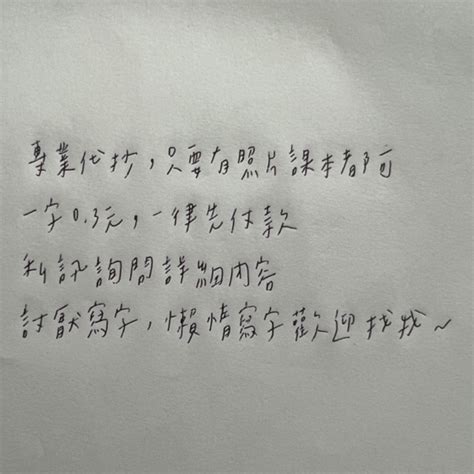 專業代抄，只要有照片課本都可
一字0.3元，一律先付款
私訊詢問詳細內容
討厭寫字，懶惰寫字歡迎找我~